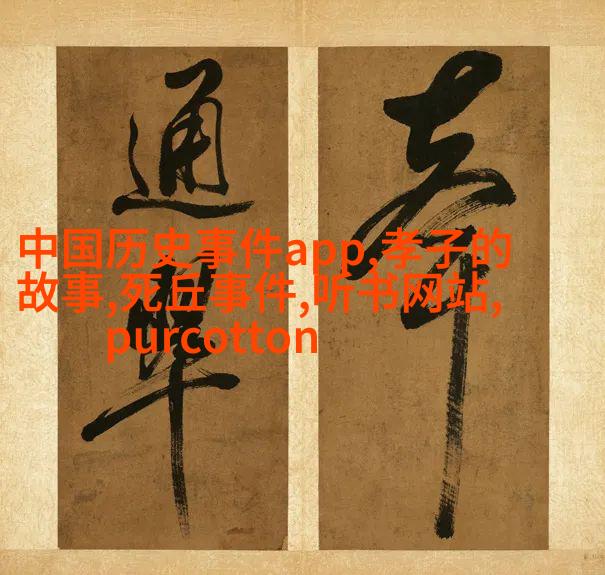 中国历史事件app,孝子的
故事,死丘事件,听书网站,
purcotton
通